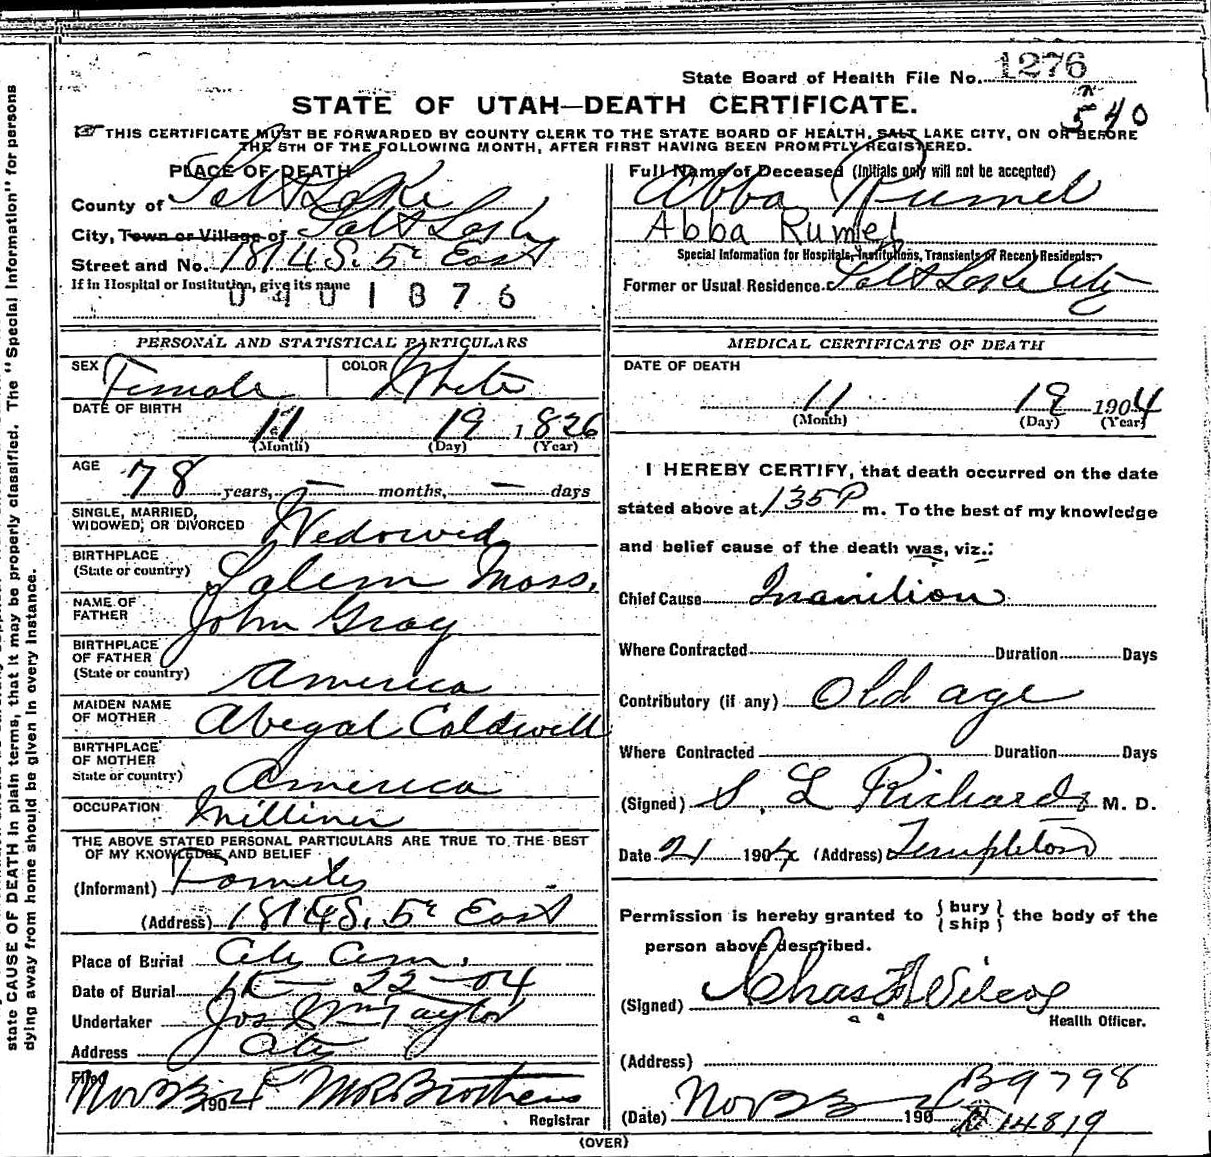 State Board of Health File No. 1276
STATE OF UTAH—DEATH CERTIFICATE.
540
THIS CERTIFICATE MUST BE FORWARDED BY COUNTY CLERK TO THE STATE BOARD OF HEALTH, SALT LAKE CITY, ON OR BEFORE
THE 5TH OF THE FOLLOWING MONTH, AFTER FIRST HAVING BEEN PROMPTLY REGISTERED.
state CAUSE OF DEATH in plain terms, that it may be properly classified. The "Special Information" for persons
dying away from home should be given in every instance.
PLACE OF DEATH
County of Salt Lake
City, Town or Village of Salt Lake
Street and No. 1814 S. 5th East
If in Hospital or Institution, give its name
0401876
Full Name of Deceased (Initials only will not be accepted)
Abba Rumel
Abba Rumel
Special Information for Hospitals, Institutions, Transients or Recent Residents.
Former or Usual Residence. Salt Lake City
PERSONAL AND STATISTICAL PARTICULARS
SEX Female COLOR White
DATE OF BIRTH
11 19 1826
(Month) (Day) (Year)
AGE
78 years, — months, — days
SINGLE, MARRIED,
WIDOWED, OR DIVORCED Wedowed
BIRTHPLACE
(State or country) Salem Mass.
NAME OF
FATHER John Gray
BIRTHPLACE
OF FATHER
(State or country) America
MAIDEN NAME
OF MOTHER Abegal Caldwell
BIRTHPLACE
OF MOTHER
State or country) America
OCCUPATION Milliner
THE ABOVE STATED PERSONAL PARTICULARS ARE TRUE TO THE BEST
OF MY KNOWLEDGE AND BELIEF
(Informant) Family
(Address) 1814 S. 5th East
Place of Burial City Cem.
Date of Burial 11—22—04
Undertaker Jos Wm Taylor
Address City
Filed
Nov 23 1904 Brothers
Registrar
MEDICAL CERTIFICATE OF DEATH
DATE OF DEATH
11 19 1904
(Month) (Day) (Year)
I HEREBY CERTIFY, that death occurred on the date
stated above at 135 P m. To the best of my knowledge
and belief cause of the death was, viz.:
Chief Cause Inanition
Where Contracted Duration Days
Contributory (if any) Old age
Where Contracted Duration Days
(Signed) S. L Richards M. D.
Date 21 1904 (Address) Templeton
Permission is hereby granted to { bury } the body of the
{ ship }
person above described.
(Signed) Chas F Wilcox
Health Officer.
(Address)
B9798
(Date) Nov 23 1904
14819
(OVER)